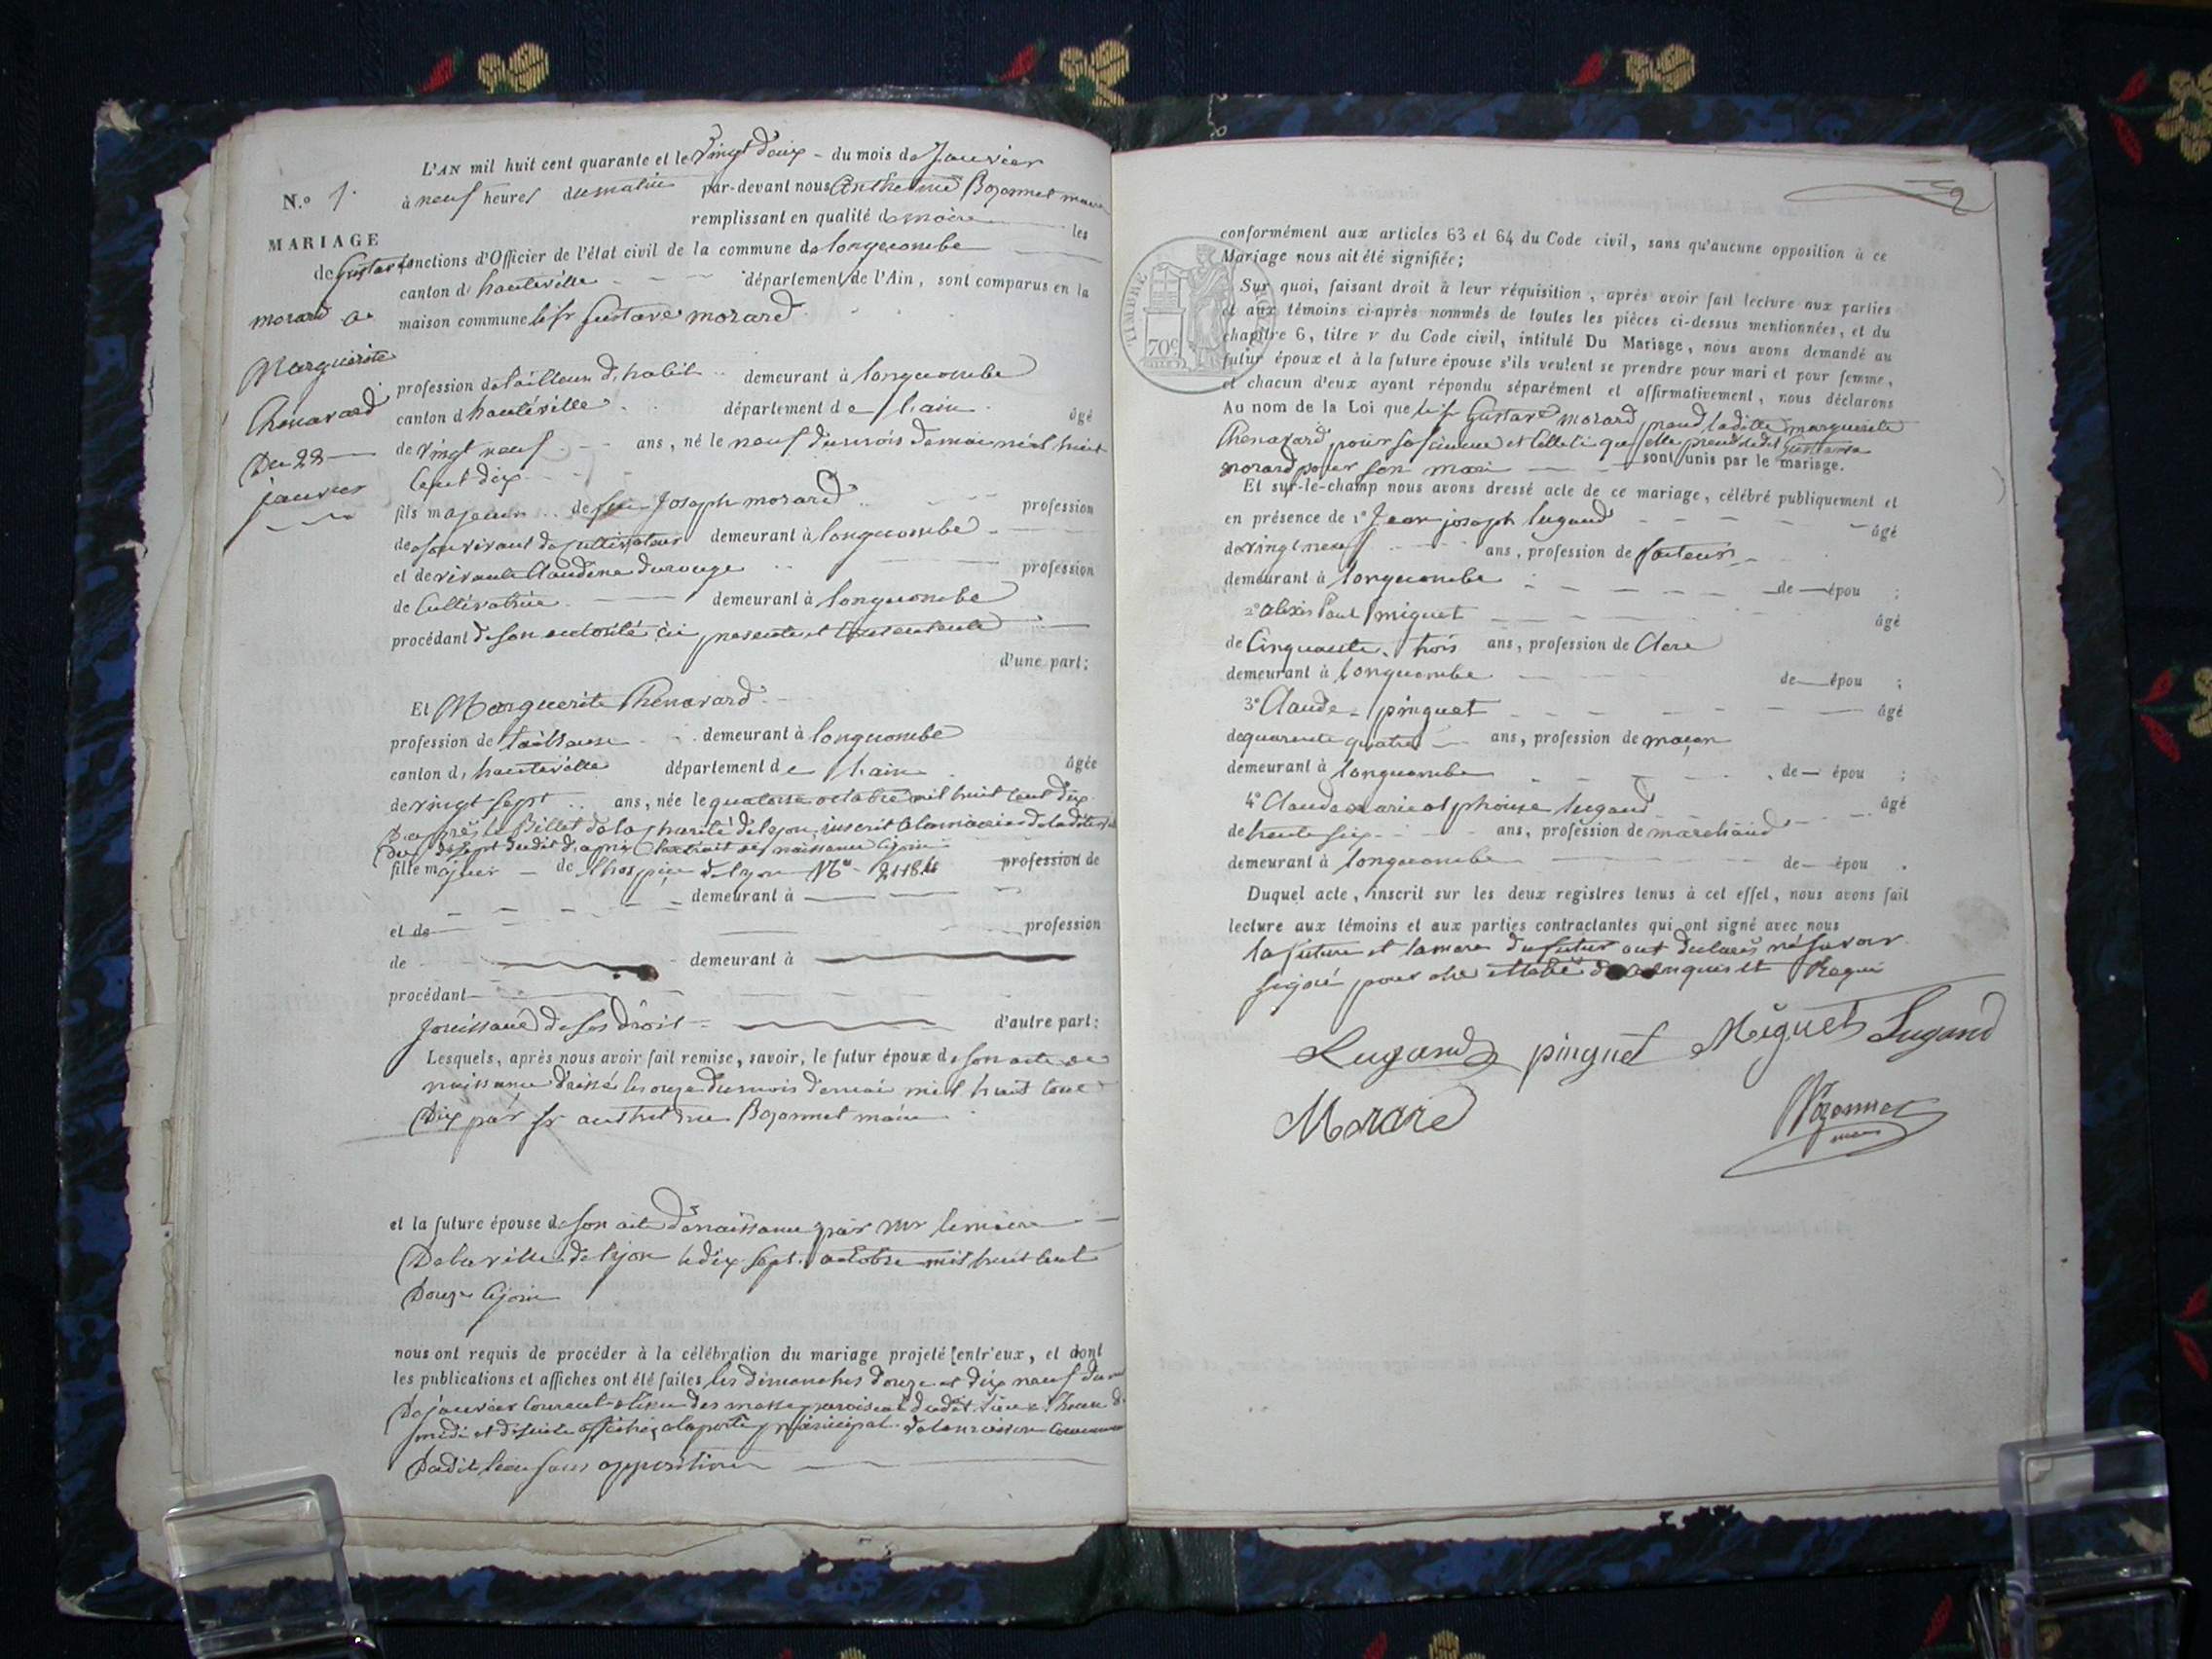 L'AN mil huit cent quarante et le vingt deux - du mois de Janvier
N.o 1.
à neuf heures du matin par-devant nous Anthelme Bozonnet maire
remplissant en qualité de maire les
MARIAGE
fonctions d'Officier de l'état civil de la commune de longecombe
de Gustave
canton d'hauteville département de l'Ain, sont comparus en la
morard &
maison commune le sr Gustave morard
Marguerite
profession de tailleur d'habit demeurant à longecombe
Chenavard
canton d'hauteville département de l'ain âgé
Du 22
de vingt neuf ans, né le neuf du mois de mai mil huit
janvier
cent dix
fils majeur de feu Joseph morard profession
de son vivant de Cultivateur demeurant à longecombe
et de vivante Claudine durouge profession
de Cultivatrice demeurant à longecombe
procédant de son autorité ici présente et Consentante
d'une part;
Et Marguerite Chenavard
profession de tailleuse demeurant à longecombe
canton d'hauteville département de l'ain âgée
de vingt sept ans, née le quatorze octobre mil huit cent dix
D'après le Billet de la charité de lyon, inscrit à la mairie de la dite
Du dix sept dudit d'après l'extrait de naissance Cijoin
fille majeur de l'hospice de lyon No 2118 profession de
demeurant à
et de profession
de demeurant à
procédant
jouissant de ses droit d'autre part;
Lesquels, après nous avoir fait remise, savoir, le futur époux de son acte de
naissance dressé le onze du mois de mai mil huit cent
Dix par sr anthelme Bozonnet maire
et la future épouse de son acte de naissance par mr le maire
De la ville de lyon le dix sept octobre mil huit cent
Douze Cijoin
nous ont requis de procéder à la célébration du mariage projeté entr'eux, et dont
les publications et affiches ont été faites les dimanches douze et dix neuf du
De janvier Courant à l'issue des messe paroissial dudit lieu à l'heure de
midi et de suite affiché à la porte principal de la maison Commune
Dudit lieu sans opposition
12
conformément aux articles 63 et 64 du Code civil, sans qu'aucune opposition à ce
Mariage nous ait été signifiée;
TIMBRE ROYAL
70c
Sur quoi, faisant droit à leur réquisition, après avoir fait lecture aux parties
et aux témoins ci-après nommés de toutes les pièces ci-dessus mentionnées, et du
chapitre 6, titre v du Code civil, intitulé Du Mariage, nous avons demandé au
futur époux et à la future épouse s'ils veulent se prendre pour mari et pour femme,
et chacun d'eux ayant répondu séparément et affirmativement, nous déclarons
Au nom de la Loi que le sr Gustave morard prend la dite marguerite
Chenavard pour sa femme et celle ci quelle prend ledit Gustave
morard pour son mari sont unis par le mariage.
Et sur-le-champ nous avons dressé acte de ce mariage, célébré publiquement et
en présence de 1o Jean joseph lugand âgé
de vingt neuf ans, profession de facteur
demeurant à longecombe de épou ;
2o Alexis Paul miguet âgé
de Cinquante trois ans, profession de Clerc
demeurant à longecombe de épou ;
3o Claude pinguet âgé
de quarante quatre ans, profession de maçon
demeurant à longecombe de épou ;
4o Claude marie alphonse lugand âgé
de trente six ans, profession de marchand
demeurant à longecombe de épou .
Duquel acte, inscrit sur les deux registres tenus à cet effet, nous avons fait
lecture aux témoins et aux parties contractantes qui ont signé avec nous
la future et la mere du futur ont declaré né savoir
signé pour de ce enquis et Requi
Lugand pinguet Miguet Lugand
Morard
Bozonnet
maire